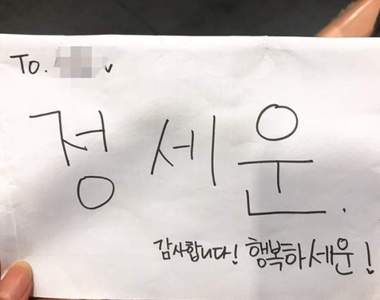 To. v
정 세 운.
감사합니다! 행복하세운!